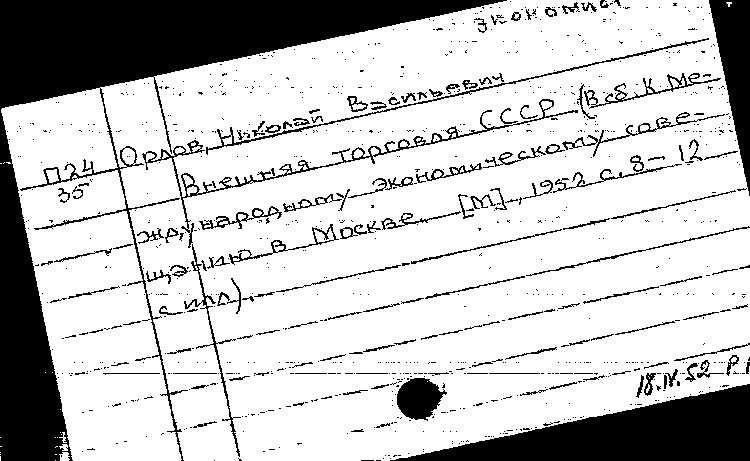 экономист
П24
35
Орлов, Николай Васильевич
Внешняя торговля СССР (В сб. К Ме-
ждународному экономическому сове-
щанию в Москве. [М], 1952 с. 8-12
с илл).
18.IV.52